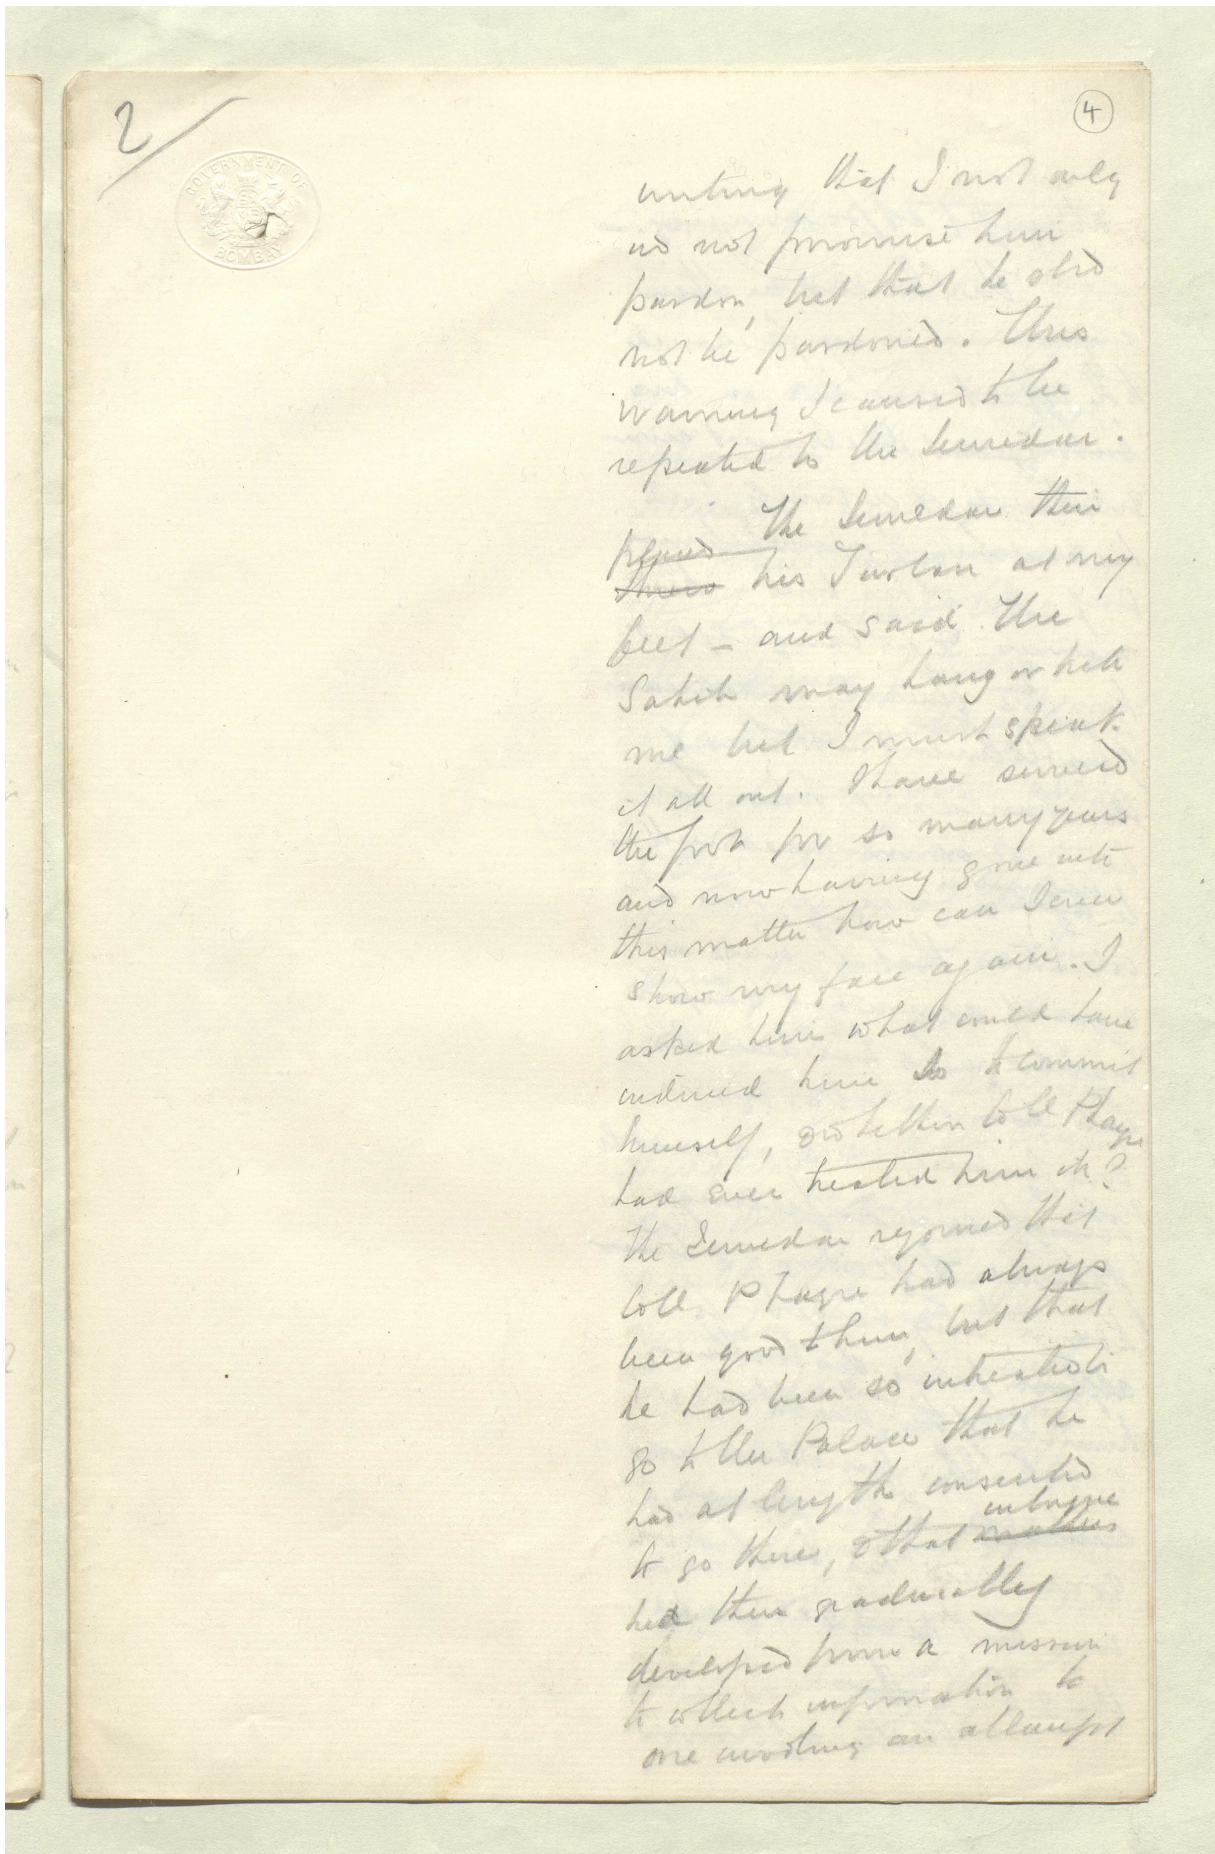 2/
4
GOVERNMENT OF
BOMBAY
writing that I not only
did not promise him
pardon, but that he shd
not be pardoned. This
warning I caused to be
repeated to the Jemedar.
The Jemedar then
placed
threw his Turban at my
feet – and said The
Sahib may hang or kill
me but I must speak
it all out. I have served
the for so many years
and now having gone into
this matter how can I ever
show my face again. I
asked him what could have
induced him to to commit
himself, & whether Coll Phayre
had ever treated him ill?
The Jemedar rejoined that
Coll. Phayre had always
been good to him, but that
he had been so entreated to
go to the Palace that he
had at length consented
intrigue
to go there, & that matters
had then gradually
developed from a mission
to collect information to
one involving an attempt